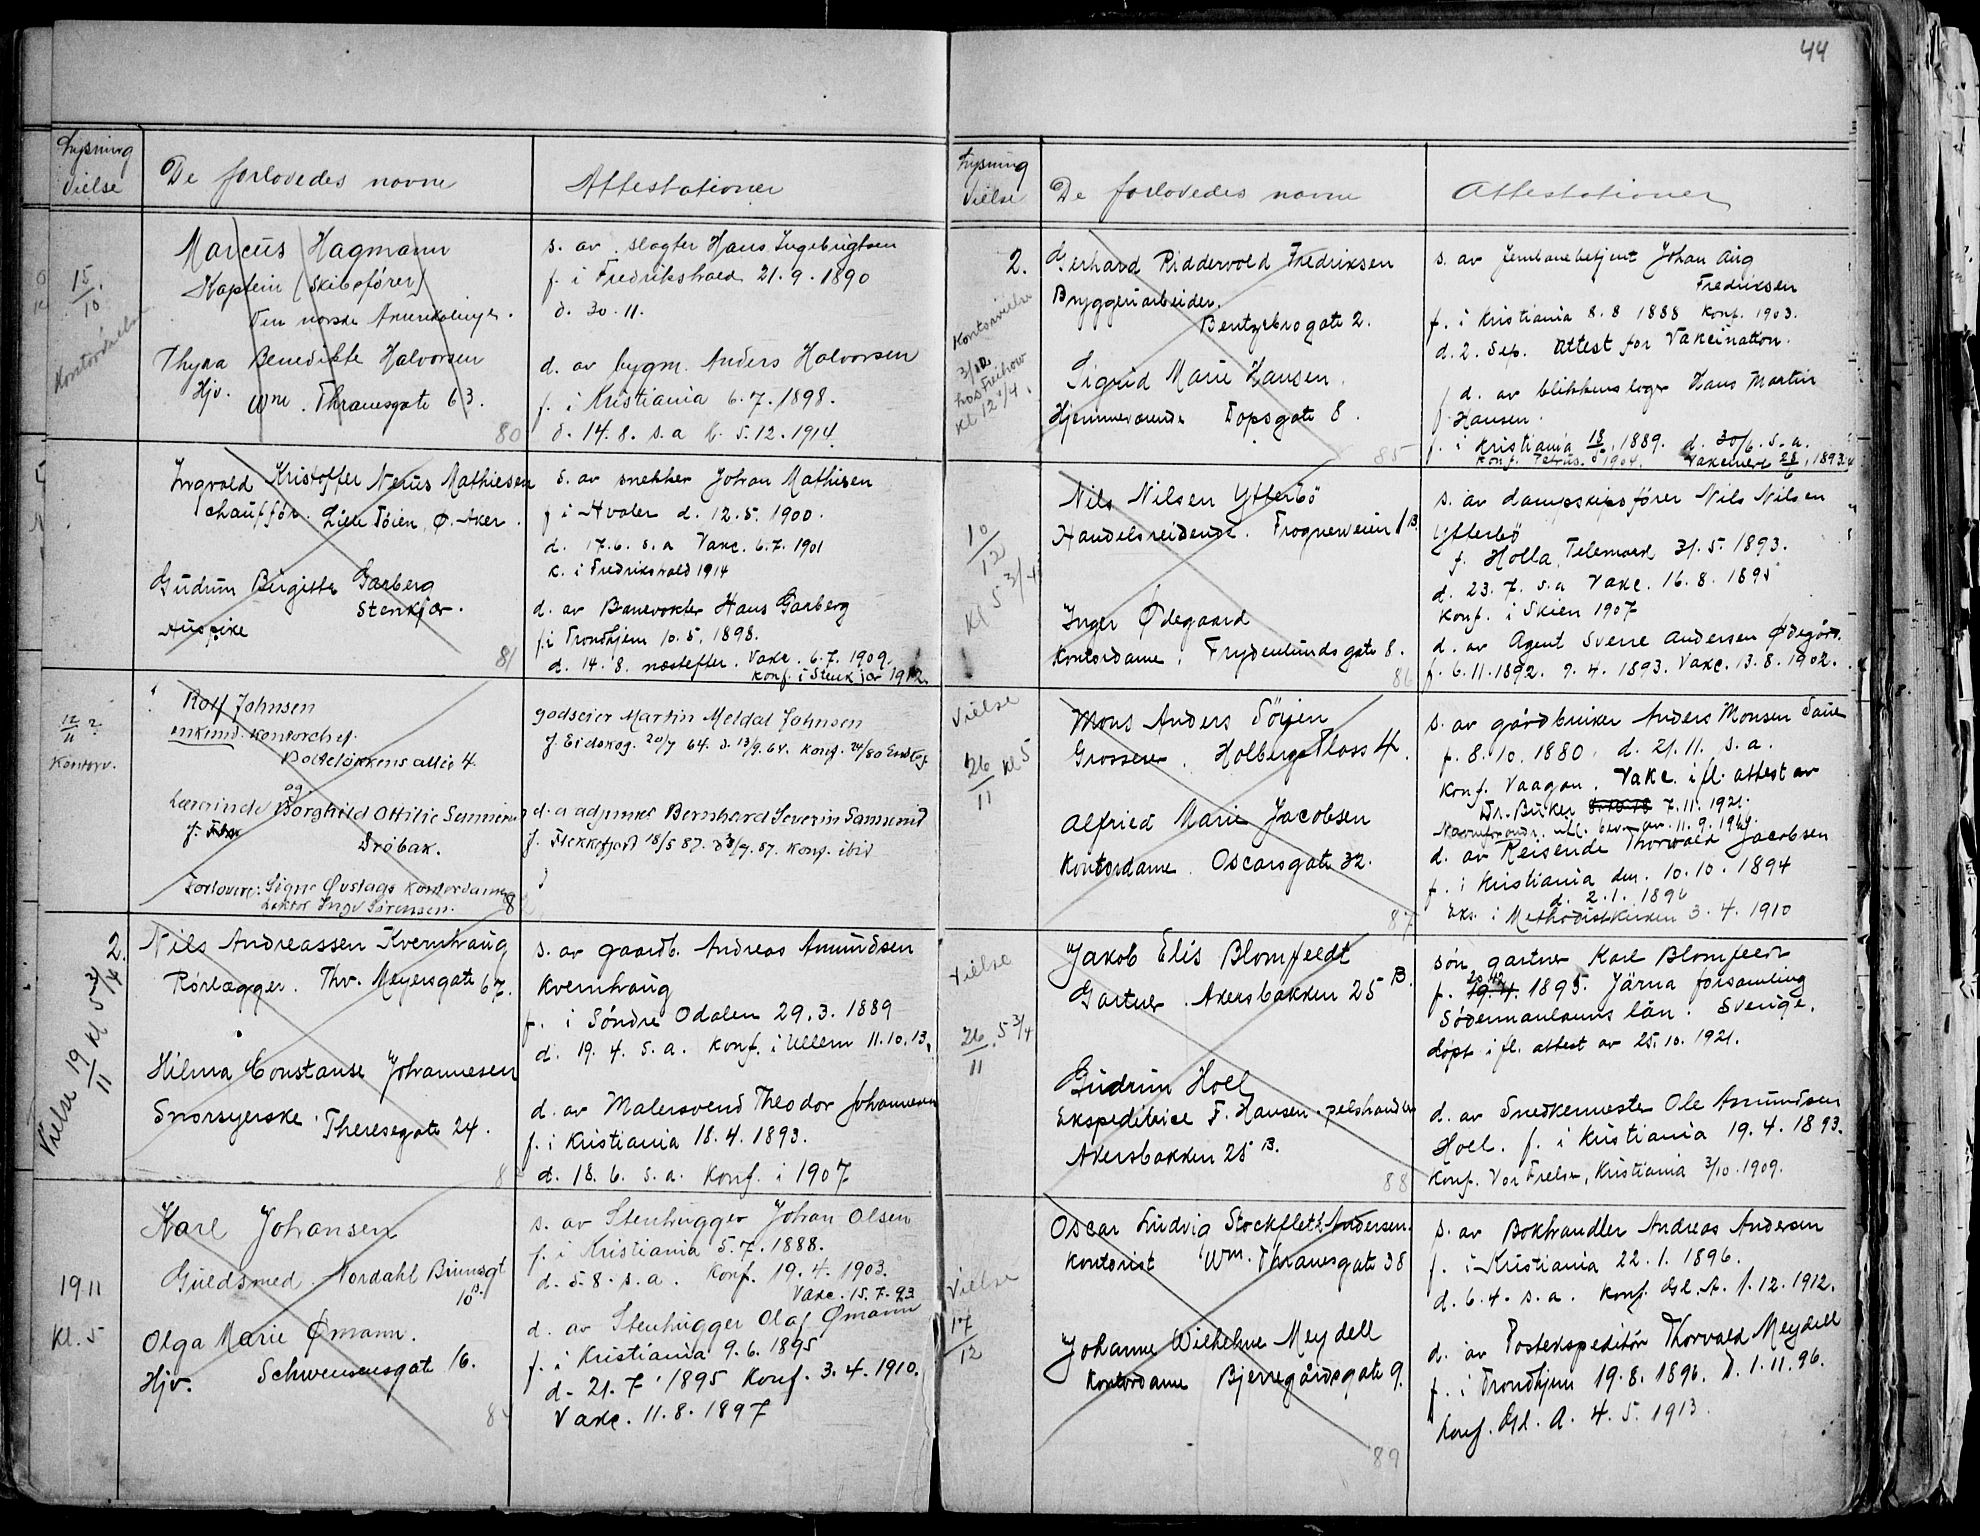 44
Lysning
Vielse
De forlovedes navne
Attestationer
15/10
Kontorvielse
Marcus Hagmann
Kaptein (Skibsfører)
Den norske Amerikalinje.
Thyra Benedikte Halvorsen
Hjv. Wm. Thranesgate 63.
80
s. av slagter Hans Ingebrigtsen
f. i Fredrikshald 21.9.1890
d. 30.11.
d. av bygm. Anders Halvorsen
f. i Kristiania 6.7.1898.
d. 14.8. s.a k. 5.12.1914
Ingvald Kristoffer Nerus Mathiesen
Chauffør. Lille Tøien, Ø. Aker.
Gudrun Birgitte Garberg
Stenkjær.
Huspike
81
s. av snekker Johan Mathisen
f i Hvaler d. 12.5.1900.
d. 17.6. s.a Vakc. 6.7.1901
k. i Fredrikshald 1914
d. av Banevokter Hans Garberg
f. i Trondhjem 10.5.1898.
d. 14.8. næstefter. Vakc. 6.7.1909.
Konf. i Stenkjær 1912.
12/11 ?
Kontorv.
Rolf Johnsen
enkemd. kontorchef.
Bolteløkkens allé 4.
og
Lærerinde Borghild Ottilie Sannerud
Drøbak.
Forlovere: Signe Øvstags Kontordame
Lektor Inge Sørensen.
8
godseier Martin Meldal Johnsen
f. Eidskog. 20/7 64. d. 13/9.64. Konf. 24/80 Eidskog
d. a adjunkt Bernhard Severin Sannerud
f. Flekkefjord 18/5 87. d 3/7.87. Konf. ibid
2.
Vielse 19/11 Kl 5 3/4
Nils Andreassen Kvernhaug
Rørlægger. Thv. Meyersgate 67.
Hilma Constanse Johannesen
Snorsyerske. Theresegate 24.
8
s. av gaardb. Andreas Amundsen
Kvernhaug
f. i Søndre Odalen 29.3.1889
d. 19.4. s.a. Konf. i Ullern 11.10.13.
d. av Malersvend Theodor Johannesen
f. i Kristiania 18.4.1893.
d. 18.6. s.a. Konf. i 1907
19 11
Kl. 5
Karl Johansen
Guldsmed. Nordahl Brunsgt
10 B.
Olga Marie Ømann.
Hjv. Schwensensgate 16.
84
s. av Stenhugger Johan Olsen
f. i Kristiania 5.7.1888.
d. 5.8. s.a. Konf. 19.4.1903.
Vakc. 15.7.93
d. av Stenhugger Olaf Ømann
f. i Kristiania 9.6.1895
d. 21.7 1895 Konf. 3.4.1910.
Vakc. 11.8.1897
Lysning
Vielse
De forlovedes navne
Attestationer
2.
Kontorvielse
3/12
hos
Kl 12 1/4.
Gerhard Riddervold Fredriksen
Bryggeriarbeider.
Bentzebrogate 2.
Sigrid Marie Hansen.
Hjemmeværende Torpsgate 8.
85
s. av jernbanebetjent Johan Aug
Fredriksen
f. i Kristiania 8.8 1888 Konf. 1903.
d. 2. Sep. Attest for Vakcination.
d. av blikkenslager Hans Martin
Hansen.
f. i Kristiania 18/ 1889. d. 30/6. s.a.
Konf. Petrus 1904. Vakcinert 28/6 1893
10/12
Kl 5 3/4
Nils Nilsen Ytterbø
Handelsreisende. Frognerveien 1 B.
Inger Ødegaard
Kontordame. Frydenlundsgate 8.
86
s. av dampskipsfører Nils Nilsen
Ytterbø
f. Holla, Telemark 31.5.1893.
d. 23.7. s.a Vakc. 16.8.1895
Konf. i Skien 1907
d. av Agent Sverre Andersen Ødegård.
f. 6.11.1892. d. 9.4.1893. Vakc. 13.8.1902.
Vielse
26/11 Kl 5
Mons Anders Tøien
Grosserer. Holbergs Plass 4.
Alfried Marie Jacobsen
Kontordame. Oscarsgate 32.
87
s. av gårdbruker Anders Monsen Saue
f. 8.10.1880. d. 21.11. s.a.
Konf. Vaagan. Vakc. ifl. attest av
Dr. Buker 7.11.1921.
Navneforandr. ifl. bev. av. 11.9.19
d. av Reisende Thorvald Jacobsen
f. i Kristiania den. 10.10.1894
d. 2.1.1896
Eks. i Methodistkirken 3.4.1910
Vielse
26/11. 5 3/4
Jakob Elis Blomfeldt
Gartner. Akersbakken 25 B.
Gudrun Hoel
Ekspeditrice F. Hansen. pelshandler
Akersbakken 25 B.
88
søn gartner Karl Blomfeldt
f. 19.4. 1895. Järna forsamling
Södermanlands län. Sverige.
døpt ifl. attest av 25.10.1921.
d. av Snedkermester Ole Amundsen
Hoel. f. i Kristiania 19.4.1893.
Konf. Vor Frelser, Kristiania 3/10.1909.
Vielse
17/12
Oscar Ludvig Stockfleth Andersen.
Kontorist Wm. Thranesgate 38
Johanne Wilhelme Meydell
Kontordame Bjerregårdsgate 9.
89
s. av Bokhandler Andreas Andersen
f. i Kristiania 22.1.1896.
d. 6.4. s.a. Konf. Gl. A. 1.12.1912.
d. av Postekspeditør Thorvald Meydell
f. i Trondhjem 19.8.1896. D. 1.11.96.
Konf. Gl. A. 4.5.1913.